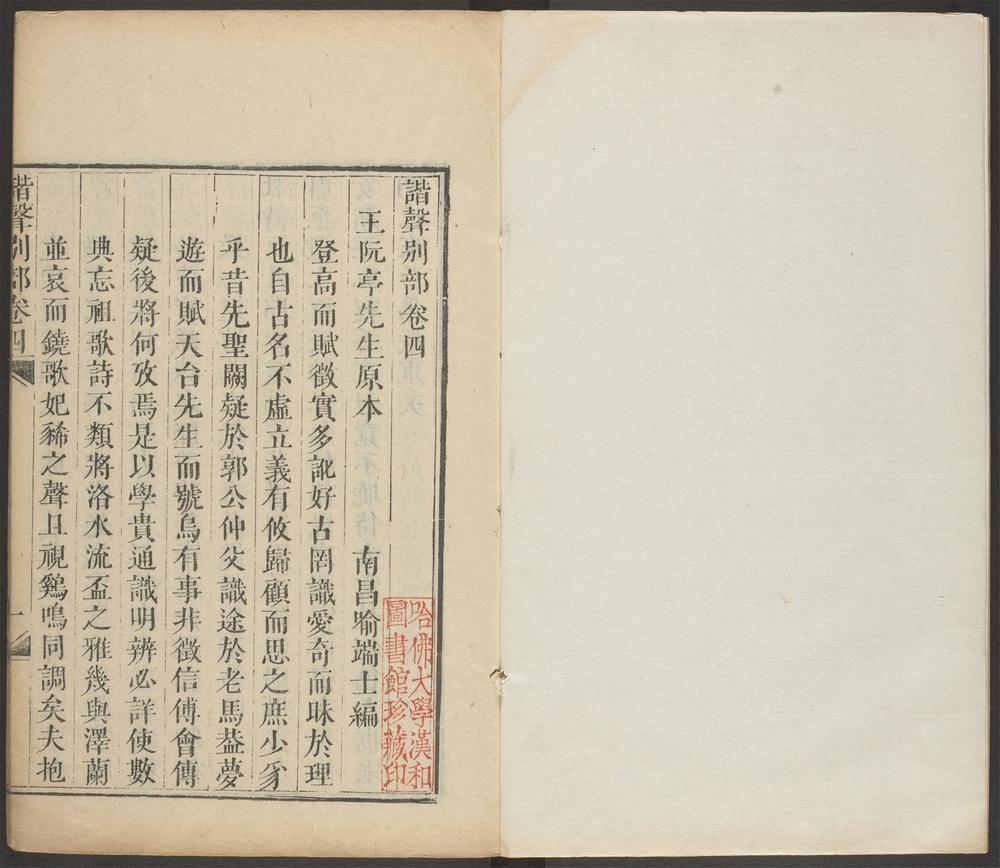 諧聲別部卷四
王阮亭先生原本　南昌喻端士編
登高而賦徵實多訛好古罔識愛奇而昧於理
也自古名不虛立義有攸歸顧而思之庶少豸
乎昔先聖闕疑於郭公仲父識途於老馬葢夢
遊而賦天台先生而號烏有事非徵信傅會傳
疑後將何攷焉是以學貴通識明辨必詳使數
典忘祖歌詩不類將洛水流盃之雅幾與澤蘭
並哀而鐃歌妃豨之聲且視鷄鳴同調矣夫抱
諧聲別部卷四
一
哈佛大學漢和
圖書館珍藏印